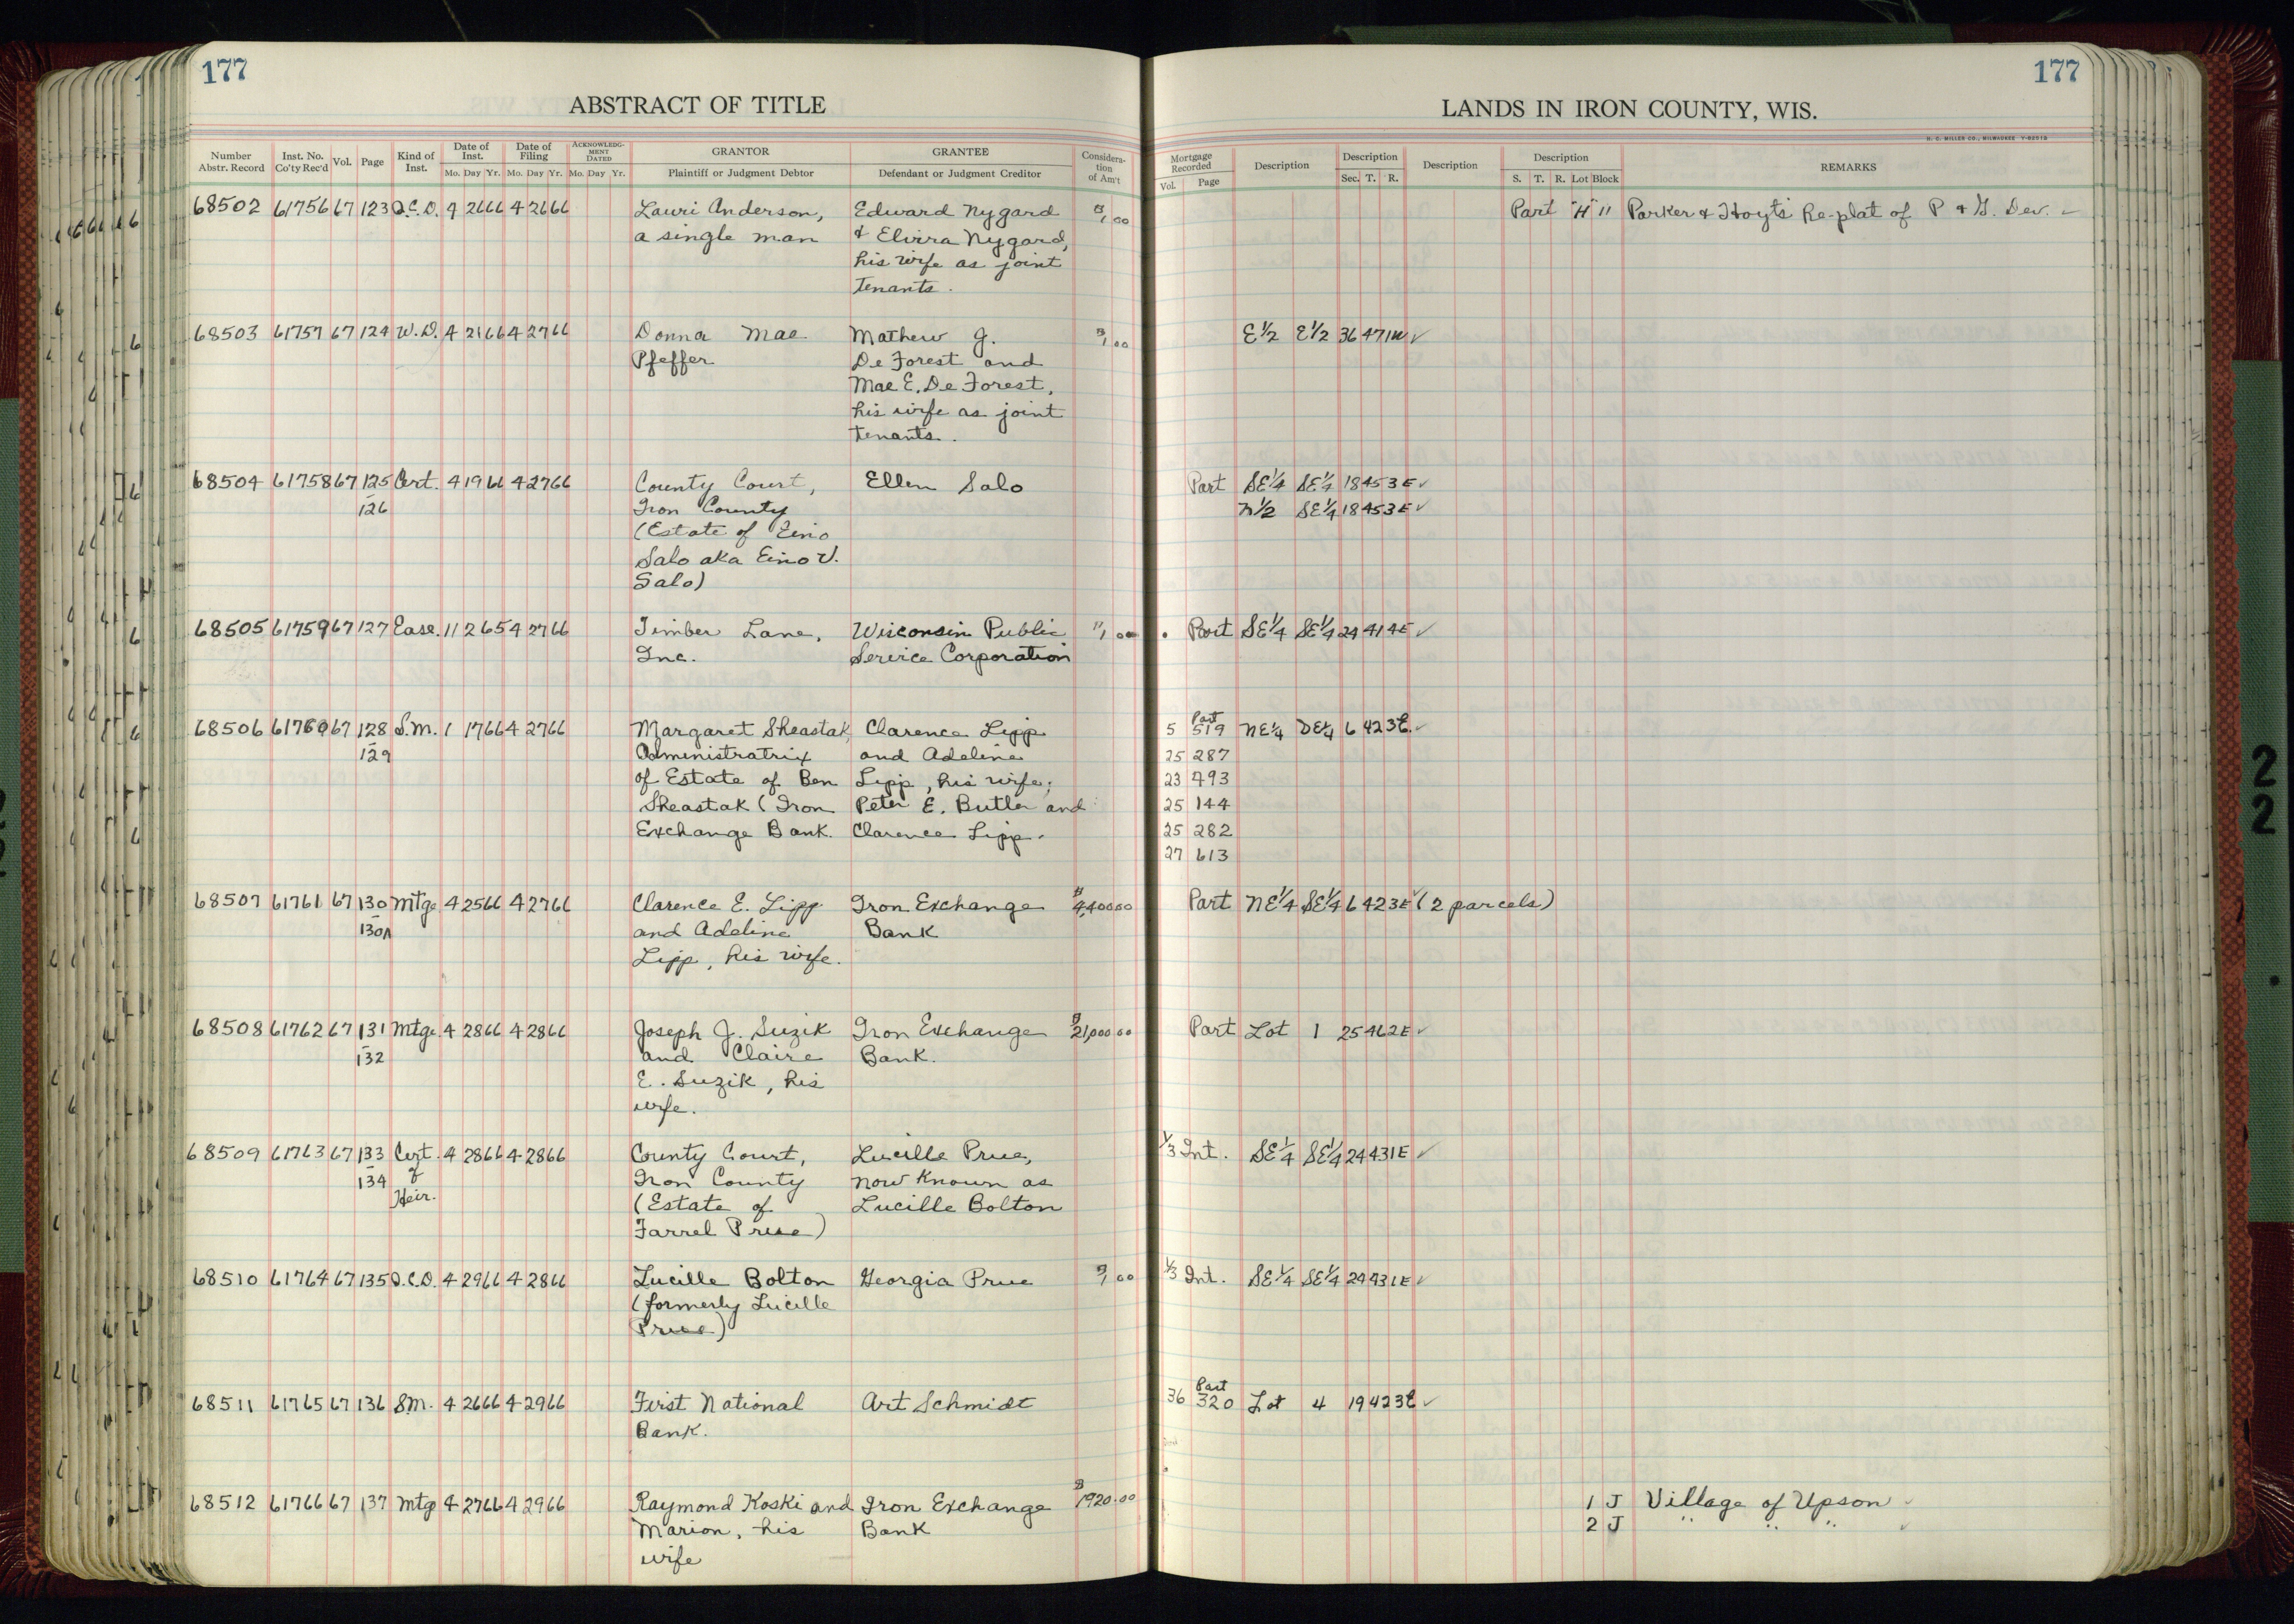 177
ABSTRACT OF TITLE
Number Abstr. Record | Inst. No. Co'ty Rec'd | Vol. | Page | Kind of Inst. | Date of Inst. Mo. Day Yr. | Date of Filing Mo. Day Yr. | ACKNOWLEDGMENT DATED Mo. Day Yr. | GRANTOR Plaintiff or Judgment Debtor | GRANTEE Defendant or Judgment Creditor | Consideration of Am't
177
LANDS IN IRON COUNTY, WIS.
H. C. MILLER CO., MILWAUKEE Y-82513
Mortgage Recorded Vol. Page | Description | Description Sec. T. R. | Description | Description S. T. R. Lot Block | REMARKS
68502 61756 67 123 Q.C.D. 4 26 66 4 26 66 Lauri Anderson, Edward Nygard $1.00 Part "H" 11 Parker & Hoyt's Re-plat of P & G. Dev. ✓
a single man & Elvira Nygard,
his wife as joint
tenants.
68503 61757 67 124 W.D. 4 21 66 4 27 66 Donna Mae Mathew J. $1.00 E½ E½ 36 47 1W ✓
Pfeffer De Forest and
Mae E. De Forest,
his wife as joint
tenants.
68504 61758 67 125 Cert. 4 19 66 4 27 66 County Court, Ellen Salo Part SE¼ SE¼ 18 45 3E ✓
-126 Iron County N½ SE¼ 18 45 3E ✓
(Estate of Eino
Salo aka Eino V.
Salo)
68505 61759 67 127 Ease. 11 2 65 4 27 66 Timber Lane, Wisconsin Public " 1.00 Part SE¼ SE¼ 24 41 4E ✓
Inc. Service Corporation
68506 61760 67 128 S.M. 1 17 66 4 27 66 Margaret Sheastak, Clarence Lipp 5 Part 519 NE¼ DE¼ 6 42 3E. ✓
-129 Administratrix and Adeline 25 287
of Estate of Ben Lipp, his wife; 23 493
Sheastak (Iron Peter E. Butler and 25 144
Exchange Bank. Clarence Lipp. 25 282
27 613
68507 61761 67 130 Mtge 4 25 66 4 27 66 Clarence E. Lipp Iron Exchange $4,400.00 Part NE¼ SE¼ 6 42 3E ✓ (2 parcels)
-130A and Adeline Bank
Lipp, his wife.
68508 61762 67 131 Mtge 4 28 66 4 28 66 Joseph J. Suzik Iron Exchange $21,000.00 Part Lot 1 25 46 2E ✓
-132 and Claire Bank.
E. Suzik, his
wife.
68509 61763 67 133 Cert. 4 28 66 4 28 66 County Court, Lucille Prue, 1/3 Int. SE¼ SE¼ 24 43 1E ✓
-134 of Iron County now known as
Heir. (Estate of Lucille Bolton
Farrel Prue)
68510 61764 67 135 Q.C.D. 4 29 66 4 28 66 Lucille Bolton Georgia Prue $1.00 1/3 Int. SE¼ SE¼ 24 43 1E ✓
(formerly Lucille
Prue)
68511 61765 67 136 S.M. 4 26 66 4 29 66 First National Art Schmidt 36 Part 320 Lot 4 19 42 3E ✓
Bank.
68512 61766 67 137 Mtge 4 27 66 4 29 66 Raymond Koski and Iron Exchange $1920.00 1 J Village of Upson ✓
Marion, his Bank 2 J " " " ✓
wife